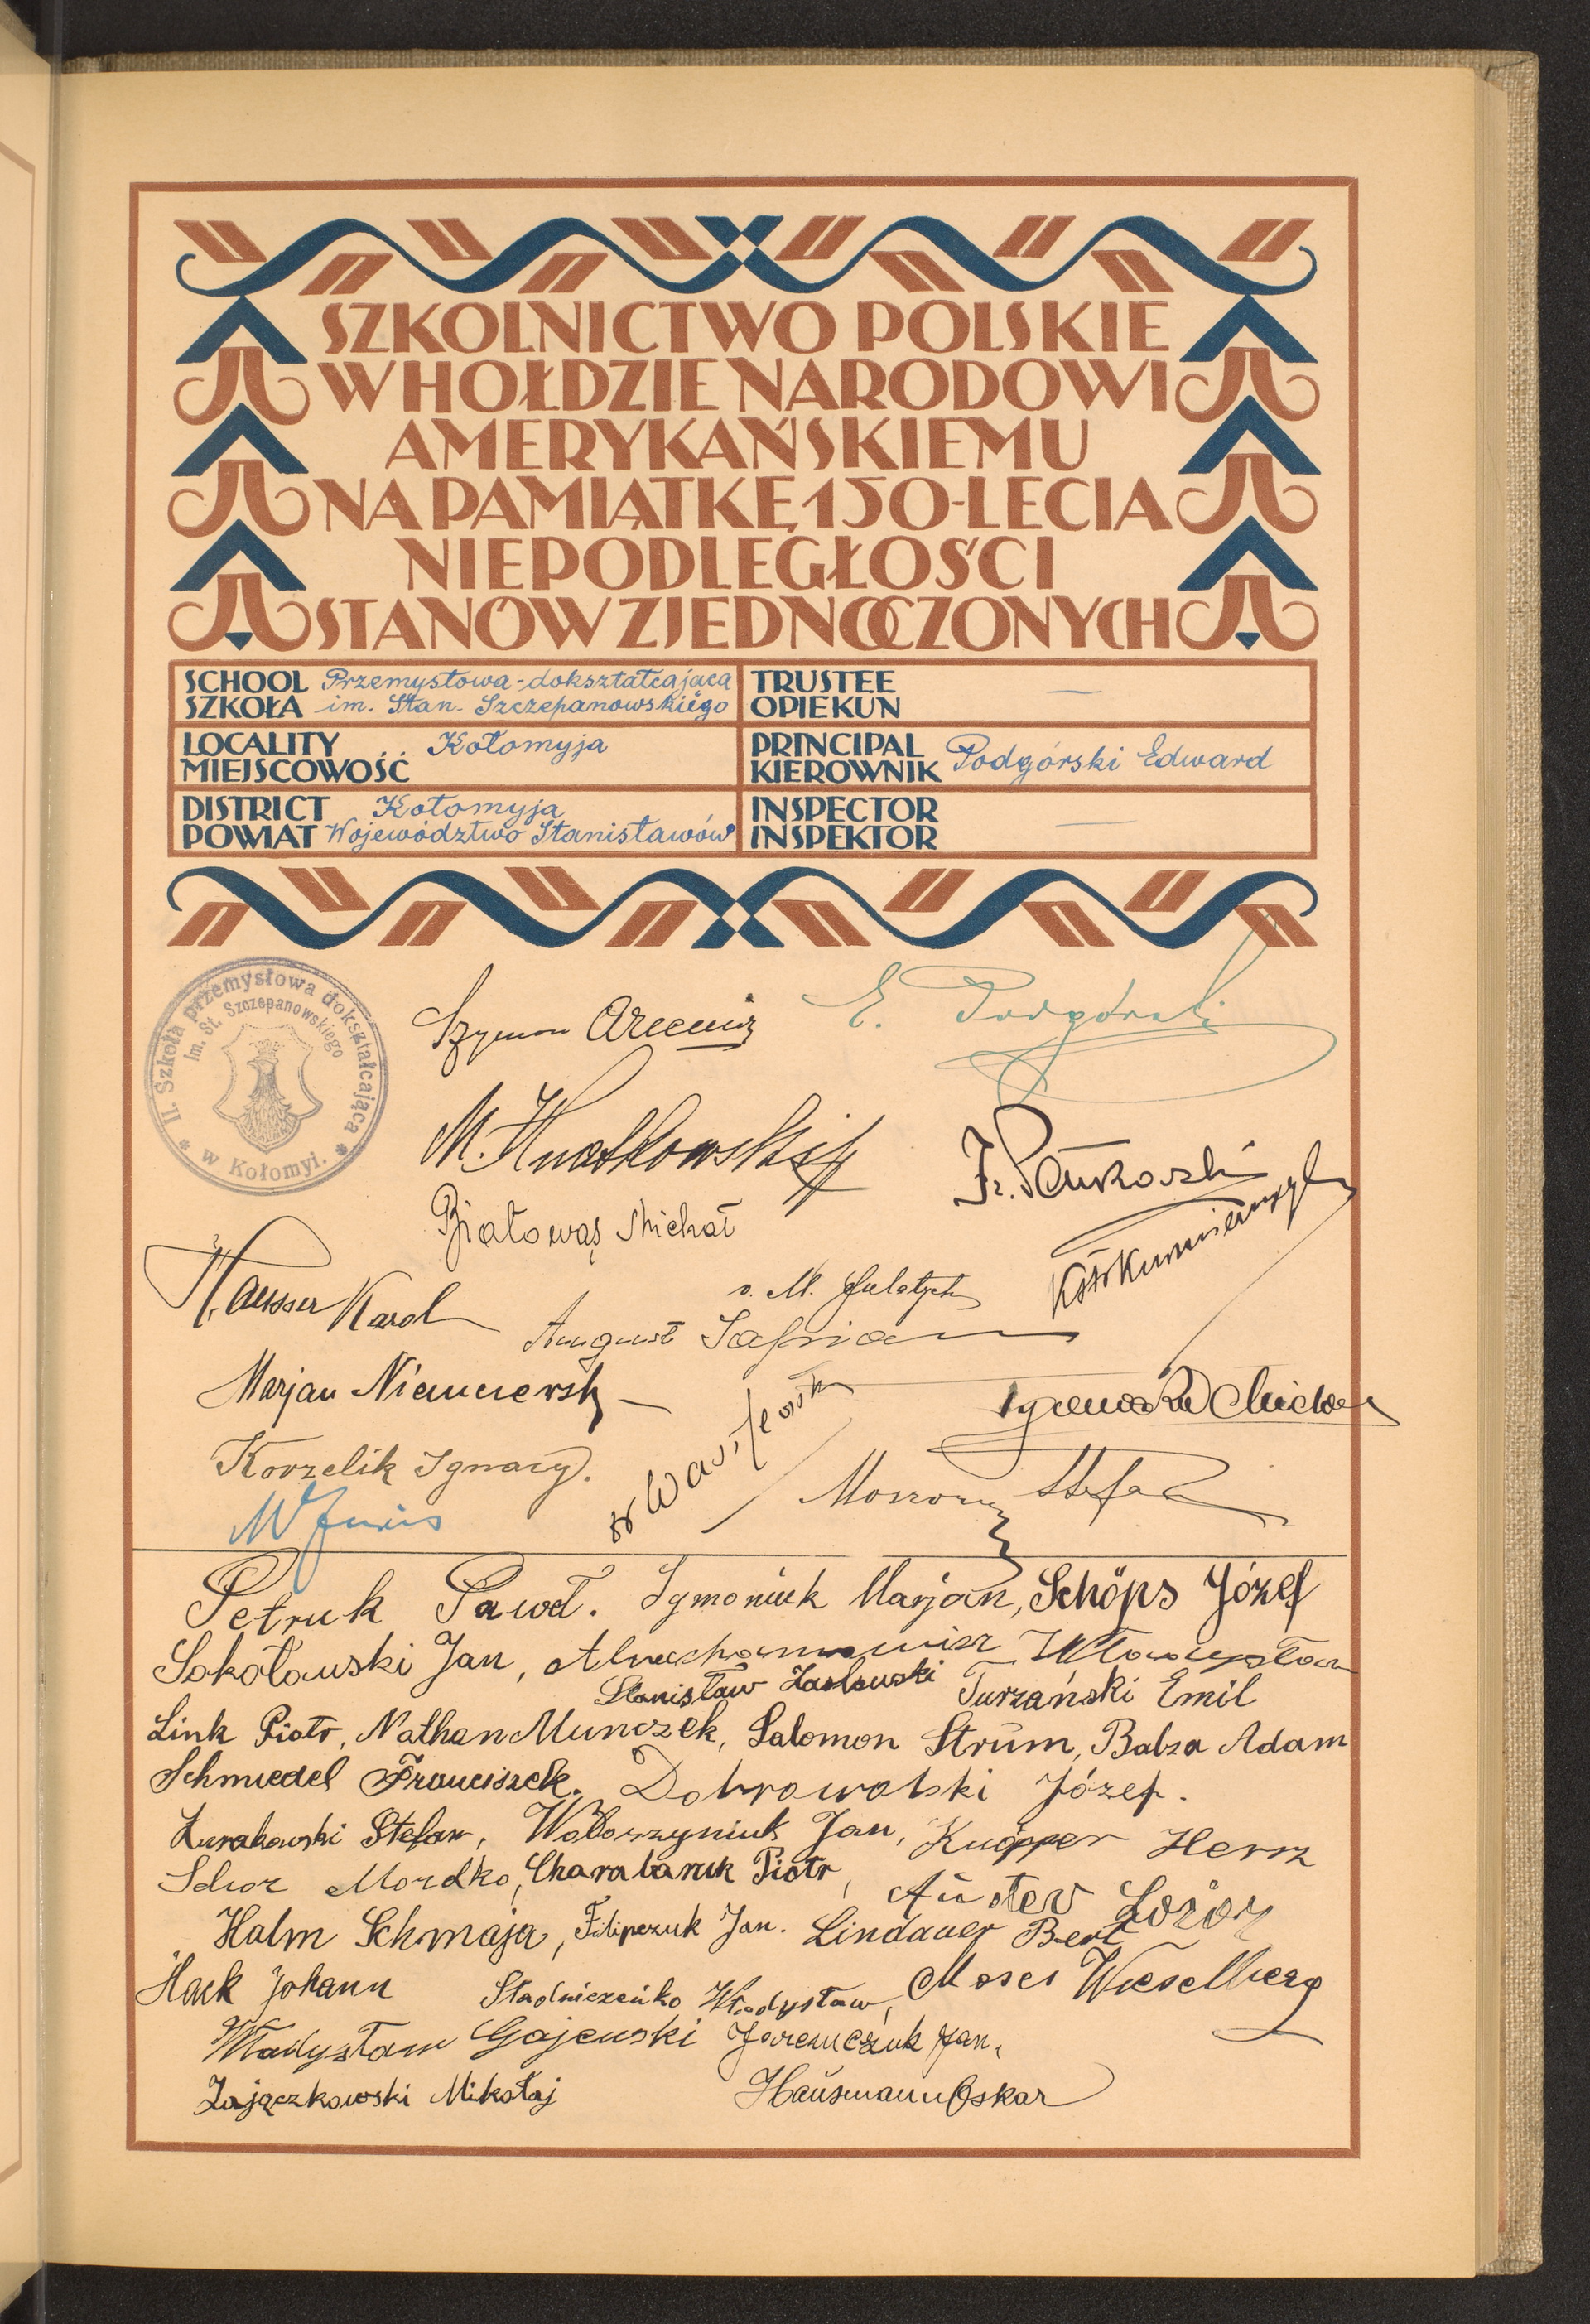 SZKOLNICTWO POLSKIE
W HOŁDZIE NARODOWI
AMERYKAŃSKIEMU
NA PAMIĄTKĘ 150-LECIA
NIEPODLEGŁOŚCI
STANÓW ZJEDNOCZONYCH
SCHOOL Przemysłowa-dokształcająca
SZKOŁA im. Stan. Szczepanowskiego
TRUSTEE —
OPIEKUN
LOCALITY Kołomyja
MIEJSCOWOŚĆ
PRINCIPAL Podgórski Edward
KIEROWNIK
DISTRICT Kołomyja
POWIAT Województwo Stanisławów
INSPECTOR —
INSPEKTOR
II. Szkoła przemysłowa dokształcająca
Im. St. Szczepanowskiego
* w Kołomyi. *
Szymon
E. Podgórski
Białowąs Michał
Hausser Karol
August
Marjan Niemczewski
Korzelik Ignacy.
Stefan
Petruk Paweł. Symoniuk Marjan, Schöps Józef
Sokołowski Jan, Władysław
Stanisław Zasławski Turzański Emil
Link Piotr, Nathan Munczek, Salomon Strum, Balza Adam
Schmiedel Franciszek. Dobrowolski Józef.
Żurakowski Stefan, Wołoszyniuk Jan, Knöpper Hersz
Schor Mordko, Charabaruk Piotr, Auster Łozor
Halm Schmaja, Filipczuk Jan. Lindauer Bert
Hack Johann Stadniczeńko Władysław, Moses Wieselberg
Władysław Gajewski Jaremczuk Jan,
Zajączkowski Mikołaj Hausmann Oskar